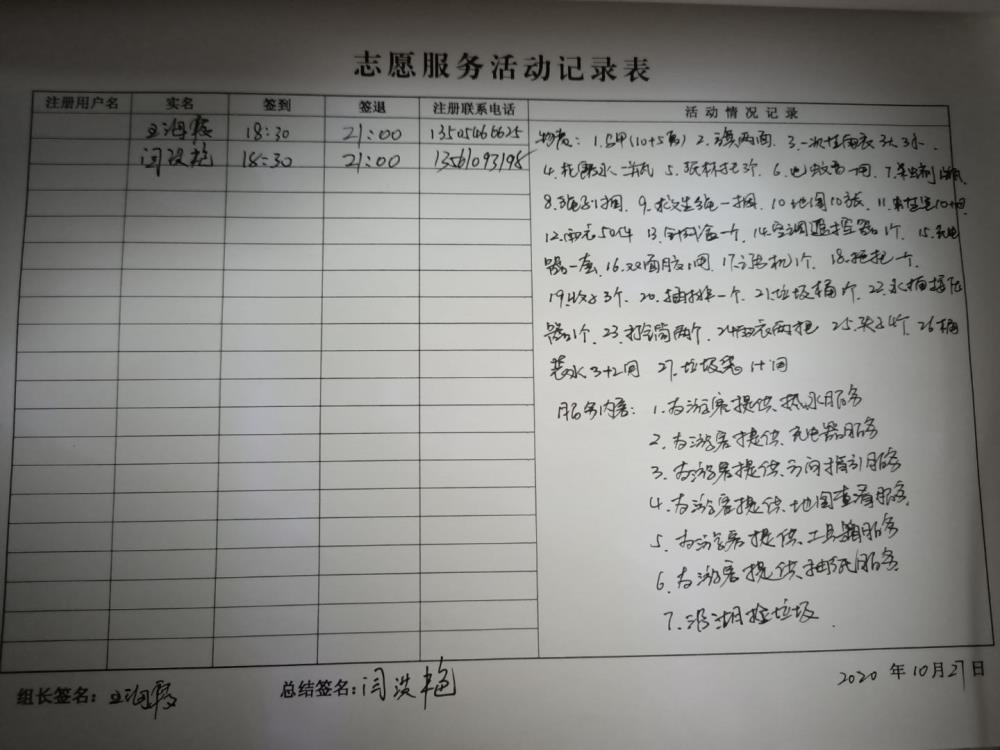 志愿服务活动记录表
注册用户名 实名 签到 签退 注册联系电话 活动情况记录
王海霞 18:30 21:00 13505466625
闫洪艳 18:30 21:00 13561093198
物资: 1. 马甲(10+5套) 2. 旗两面 3. 一次性雨衣 3大3小.
4. 花露水一瓶 5. 纸杯托3个 6. 电蚊香一围 7. 杀虫剂
8. 绳子1捆 9. 救生绳一捆 10 地图10张. 11.
12. 13. 针线盒一个 14. 空调遥控器1个 15. 充电
器一套 16. 双面胶1围 17. 1个 18. 拖把一个
19. 3个. 20. 插排一个 21. 垃圾桶1个 22. 水桶
器1个 23. 两个 24 雨衣两把 25. 夹子4个 26 桶
装水3+2 27. 垃圾袋
服务内容: 1. 为游客提供热水服务
2. 为游客提供充电器服务
3. 为游客提供方向指引服务
4. 为游客提供地图查看服务
5. 为游客提供工具箱服务
6. 为游客提供抽纸服务
7. 沿湖捡垃圾
组长签名: 王海霞 总结签名: 闫洪艳 2020 年 10 月 27 日